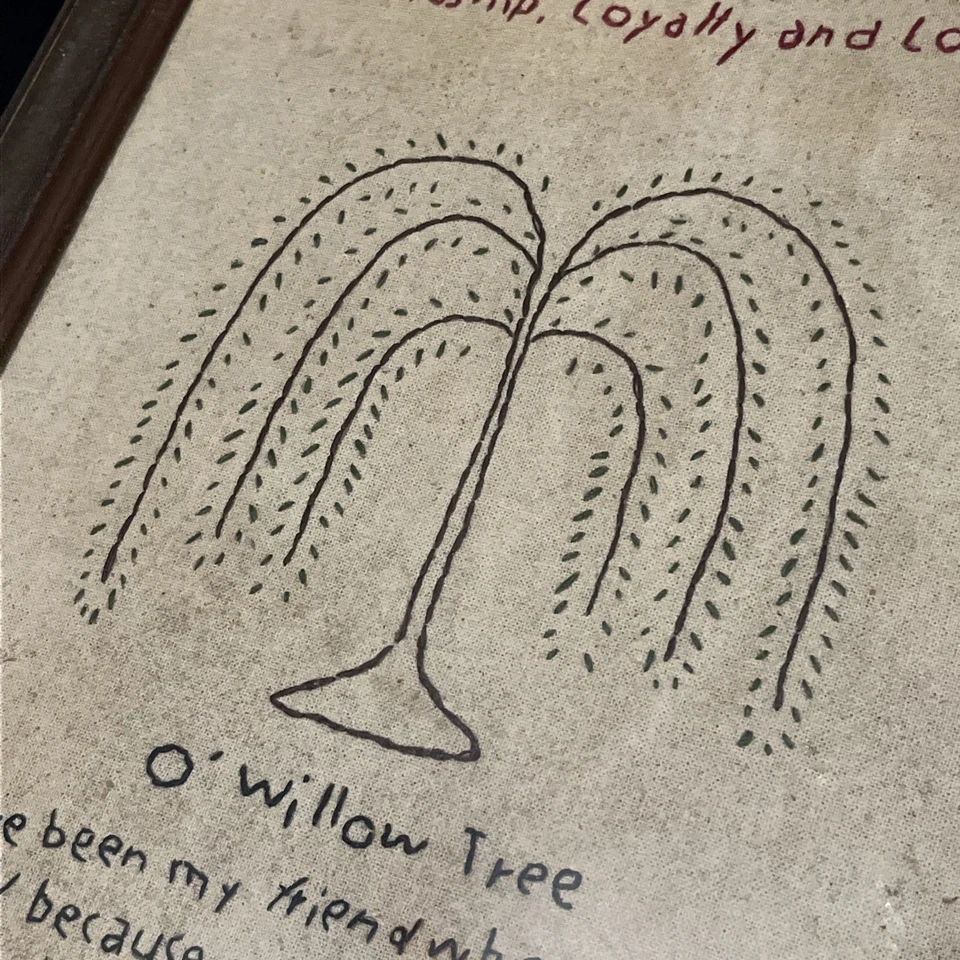 Loyalty and
O' Willow Tree
been my friend
because